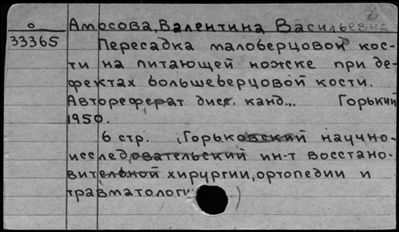 о Амосова, Валентина Васильевна
33365 Пересадка малоберцовой кос-
ти на питающей ножке при де-
фектах большеберцовой кости.
Автореферат дисс. канд.. Горький
1950.
6 стр. (Горьковский научно-
исследовательский ин-т восстано-
вительной хирургии, ортопедии и
травматологи